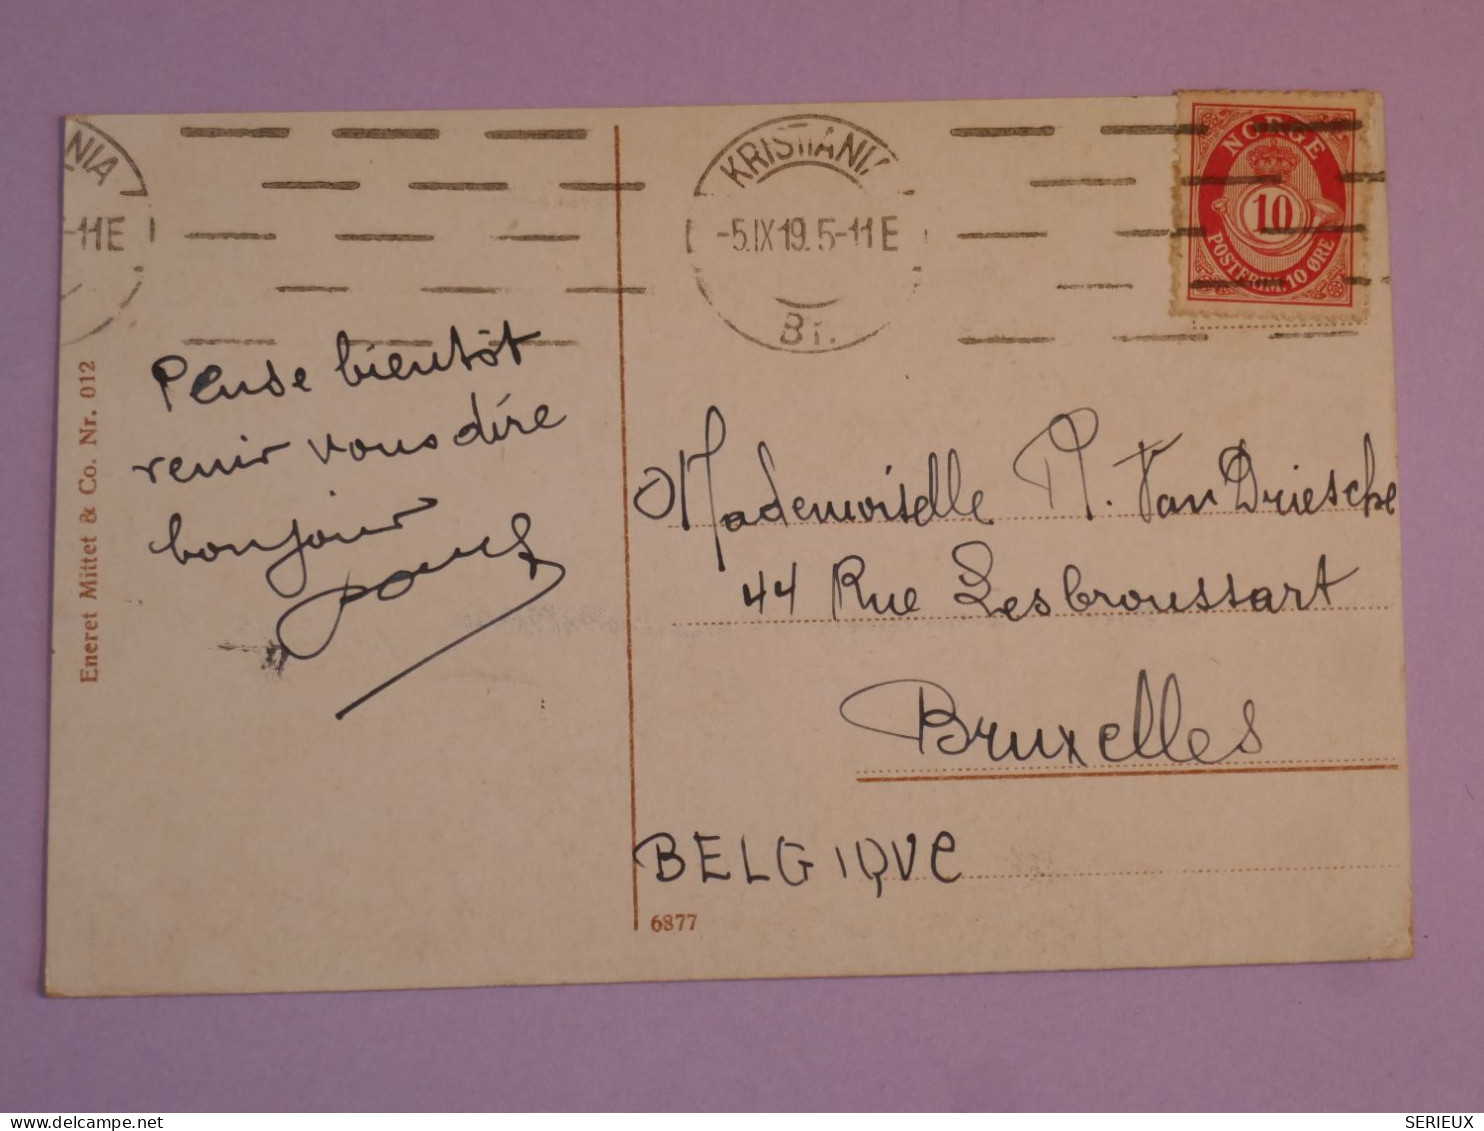 NIA
-11E
KRISTIANIA
-5.IX 19. 5-11 E
Br.
NORGE
10
POSTFRIM. 10 ØRE
Pense bientôt
venir vous dire
bonjour
Mademoiselle M. Van Driesche
44 Rue Lesbroussart
Bruxelles
BELGIQVE
Eneret Mittet & Co. Nr. 012
6877
SERIEUX
www.delcampe.net